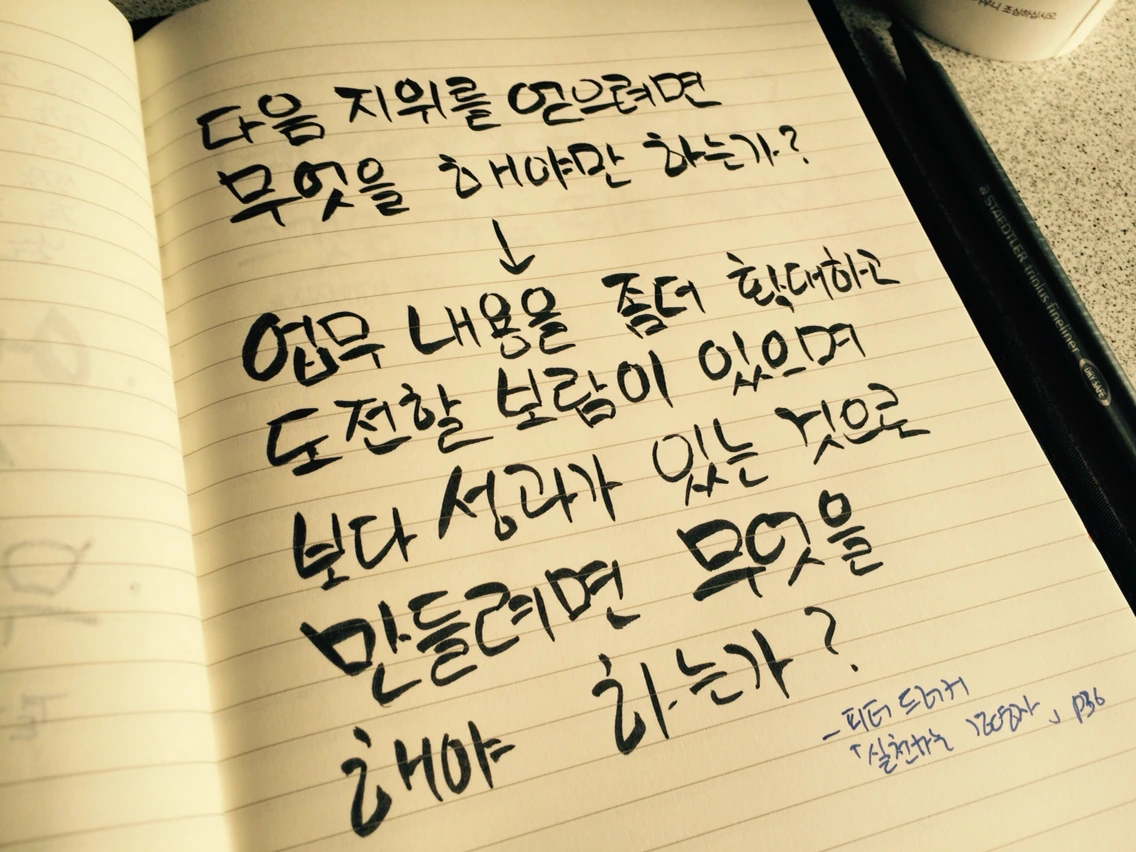 다음 지위를 얻으려면
무엇을 해야만 하는가?
↓
업무 내용을 좀더 확대하고
도전할 보람이 있으며
보다 성과가 있는 것으로
만들려면 무엇을
해야 하는가?
- 피터 드러커
「실천하는 경영자」 p36
조심하십시오
STAEDTLER triplus fineliner
DRY SAFE